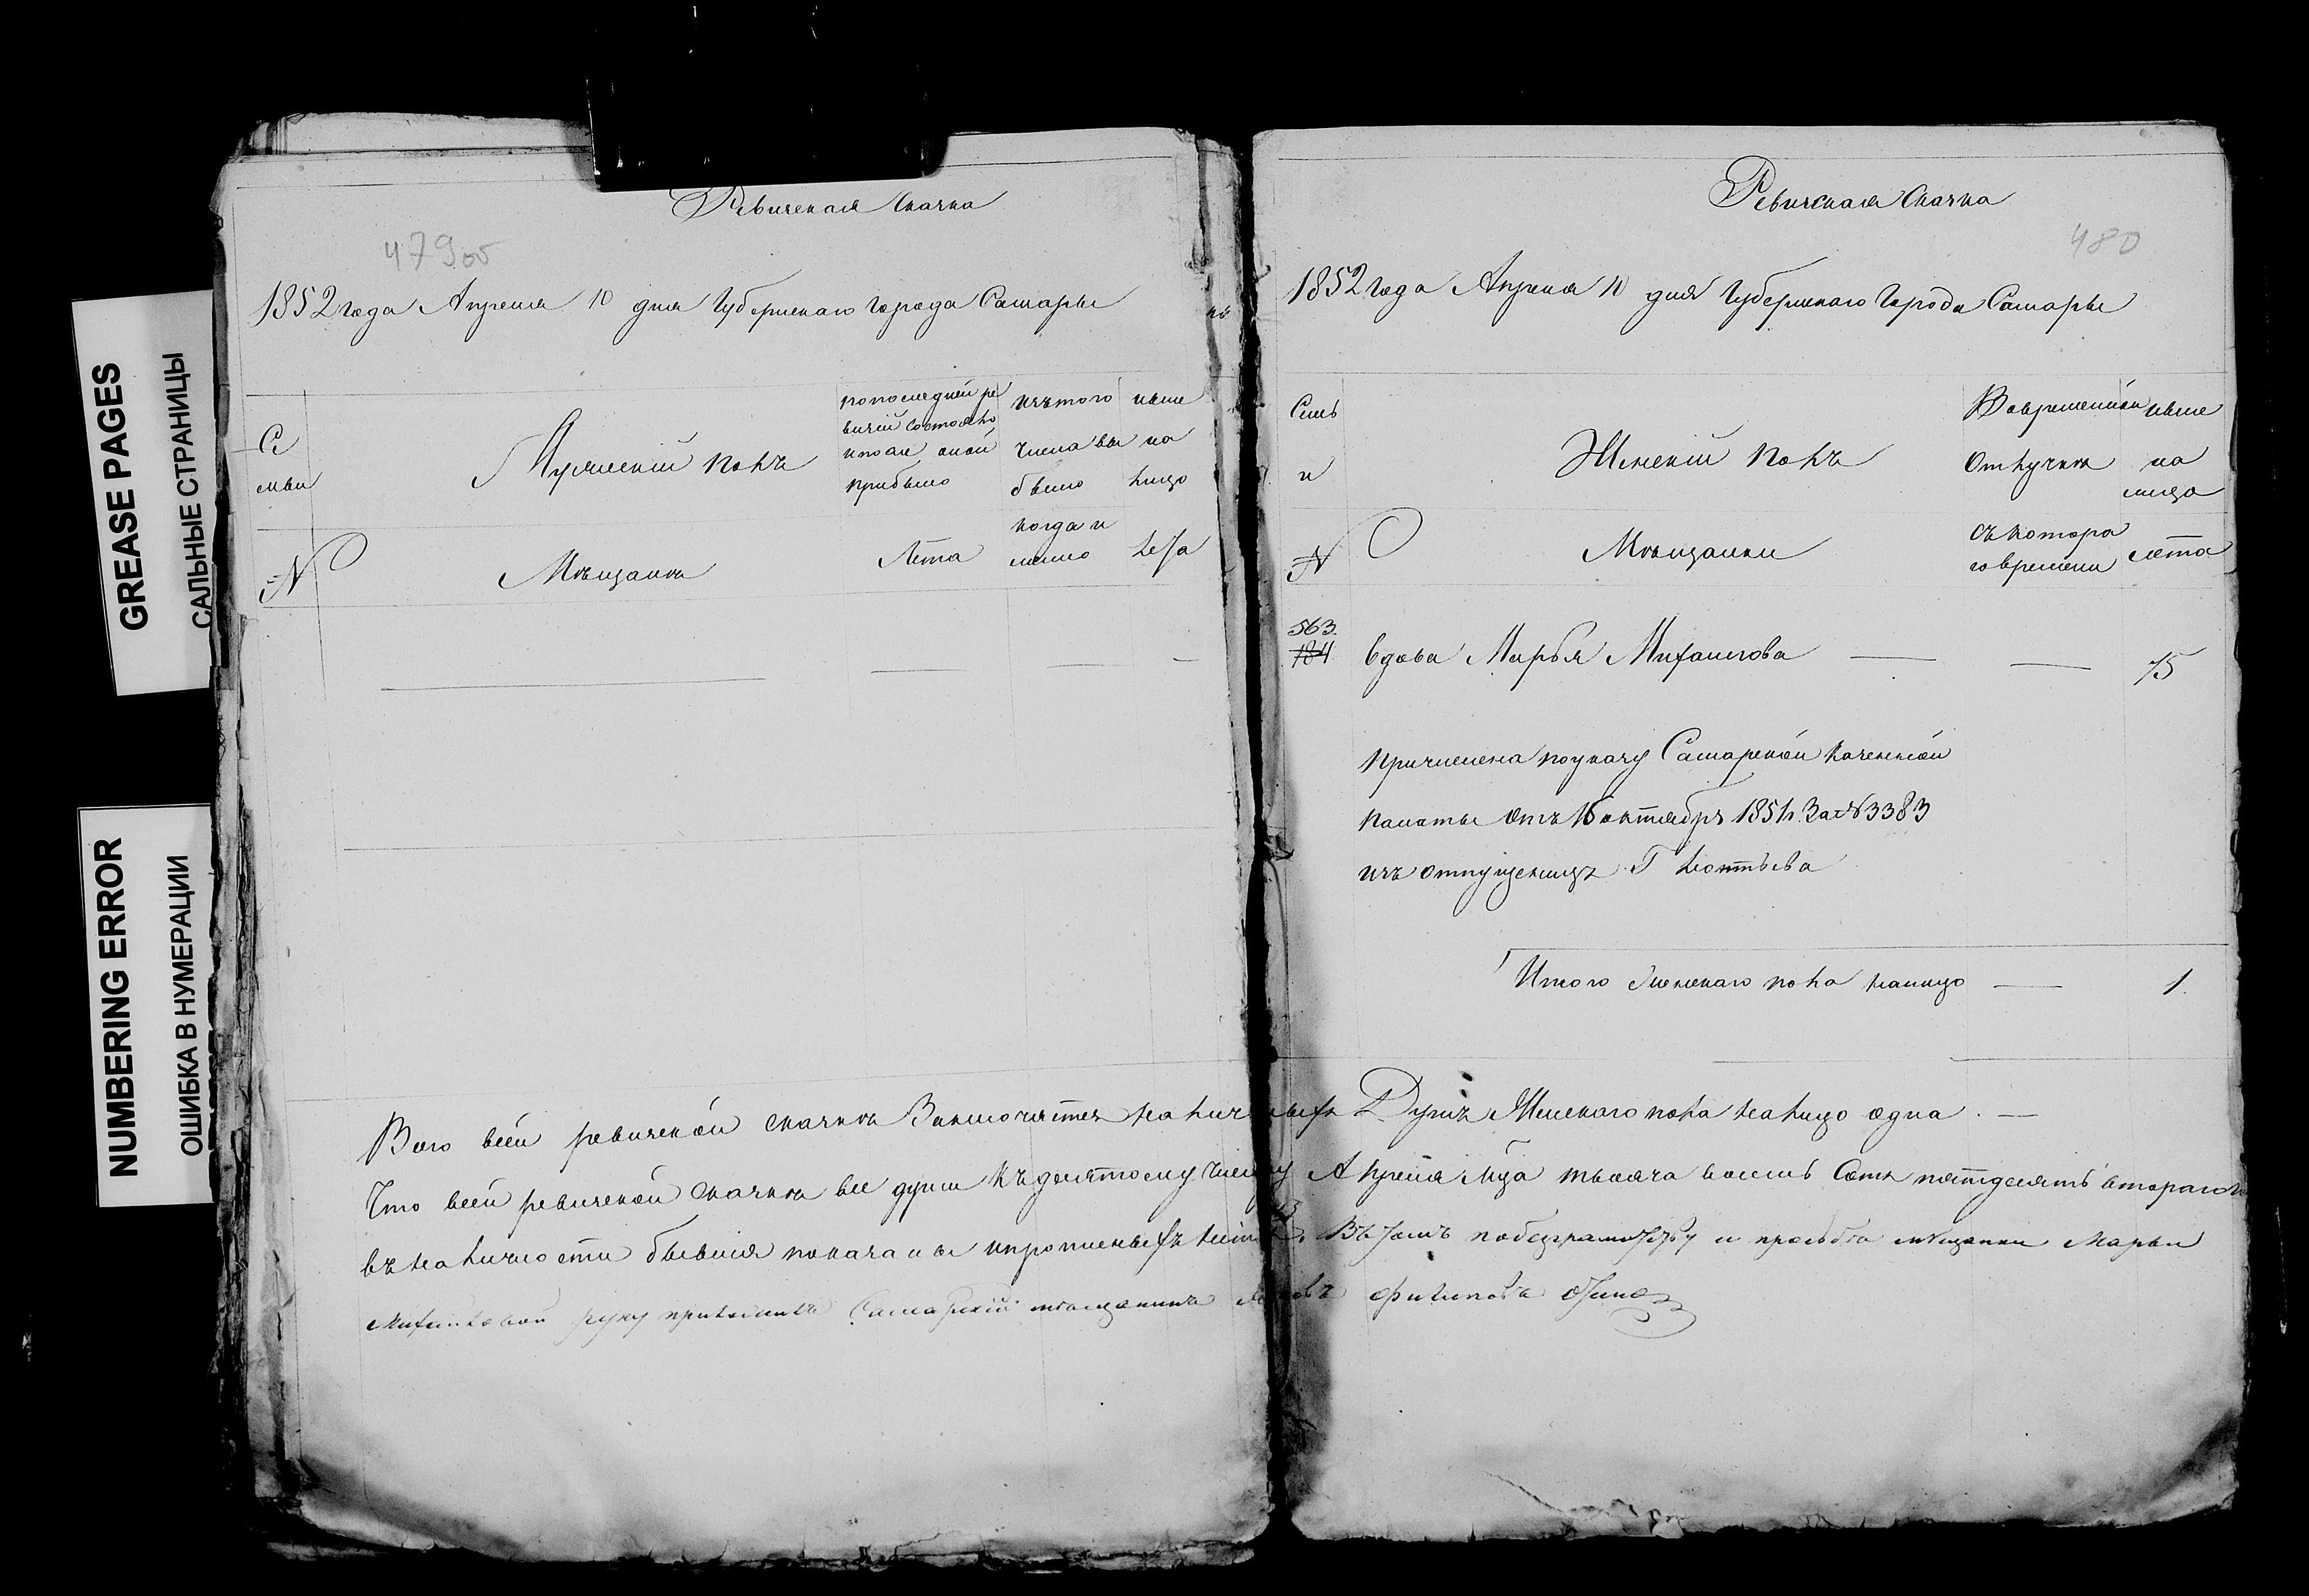 GREASE PAGES
САЛЬНЫЕ СТРАНИЦЫ
NUMBERING ERROR
ОШИБКА В НУМЕРАЦИИ
Ревизская Сказка
479об
1852 года Апреля 10 дня Губернскаго города Самары
Се
мьи
№
Мужескій полъ
Мѣщанѣ
по последней ре
визіи состояло
и после оной
прибыло
Лета
изъ того
числа вы
было
когда и
менно
ныне
на
лицо
лета
Ревизская Сказка
480
1852 года Апреля 10 дня Губернскаго Города Самары
Семь
и
№
Женскій полъ
Мѣщанки
Во временной
отлучкѣ
съ котора
го времени
ныне
на
лицо
лѣта
563.
184
вдова Марья Михаилова — — 75
Причислена по указу Самарской Казенной
Палаты отъ 16 октября 1851 г. За № 3383
изъ отпущенницъ Г Леонтьева
Итого Женскаго пола налицо — 1.
Всего всей ревизской сказкѣ Заключается наличныхъ Душъ Женскаго пола налицо одна. —
Что всей ревизской сказкѣ все души къ десятому числу Апреля м-ца тысяча восемь Сотъ пятдесять втораго
въ наличности бывшія показаны и прописныхъ нетъ. Въ томъ по безграмотству и прозьбѣ мещанки Марьи
Михайловой руку приложилъ Самарскій мѣщанинъ Филиповъ